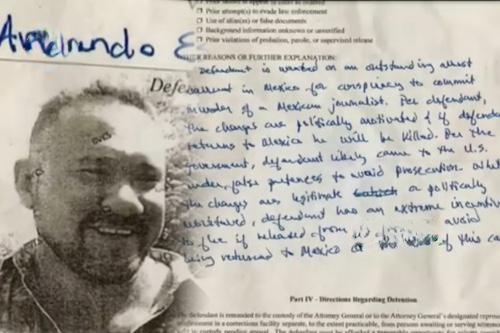 Prior attempt(s) to evade law enforcement
Use of alias(es) or false documents
Background information unknown or unverified
Prior violations of probation, parole, or supervised release
REASONS OR FURTHER EXPLANATION:
Defendant is wanted on an outstanding arrest
warrant in Mexico for conspiracy to commit
murder of a Mexican journalist. Per defendant,
the charges are politically motivated & if defendant
returns to Mexico he will be killed. Per the
government, defendant likely came to the U.S.
under false pretenses to avoid prosecution.
the charges are legitimate or politically
motivated, defendant has an extreme incentive
to flee if released from avoid
being returned to Mexico of this
Part IV - Directions Regarding Detention
defendant is remanded to the custody of the Attorney General or to the Attorney General's designated
confinement in a corrections facility separate, to the extent practicable, from persons awaiting or serving